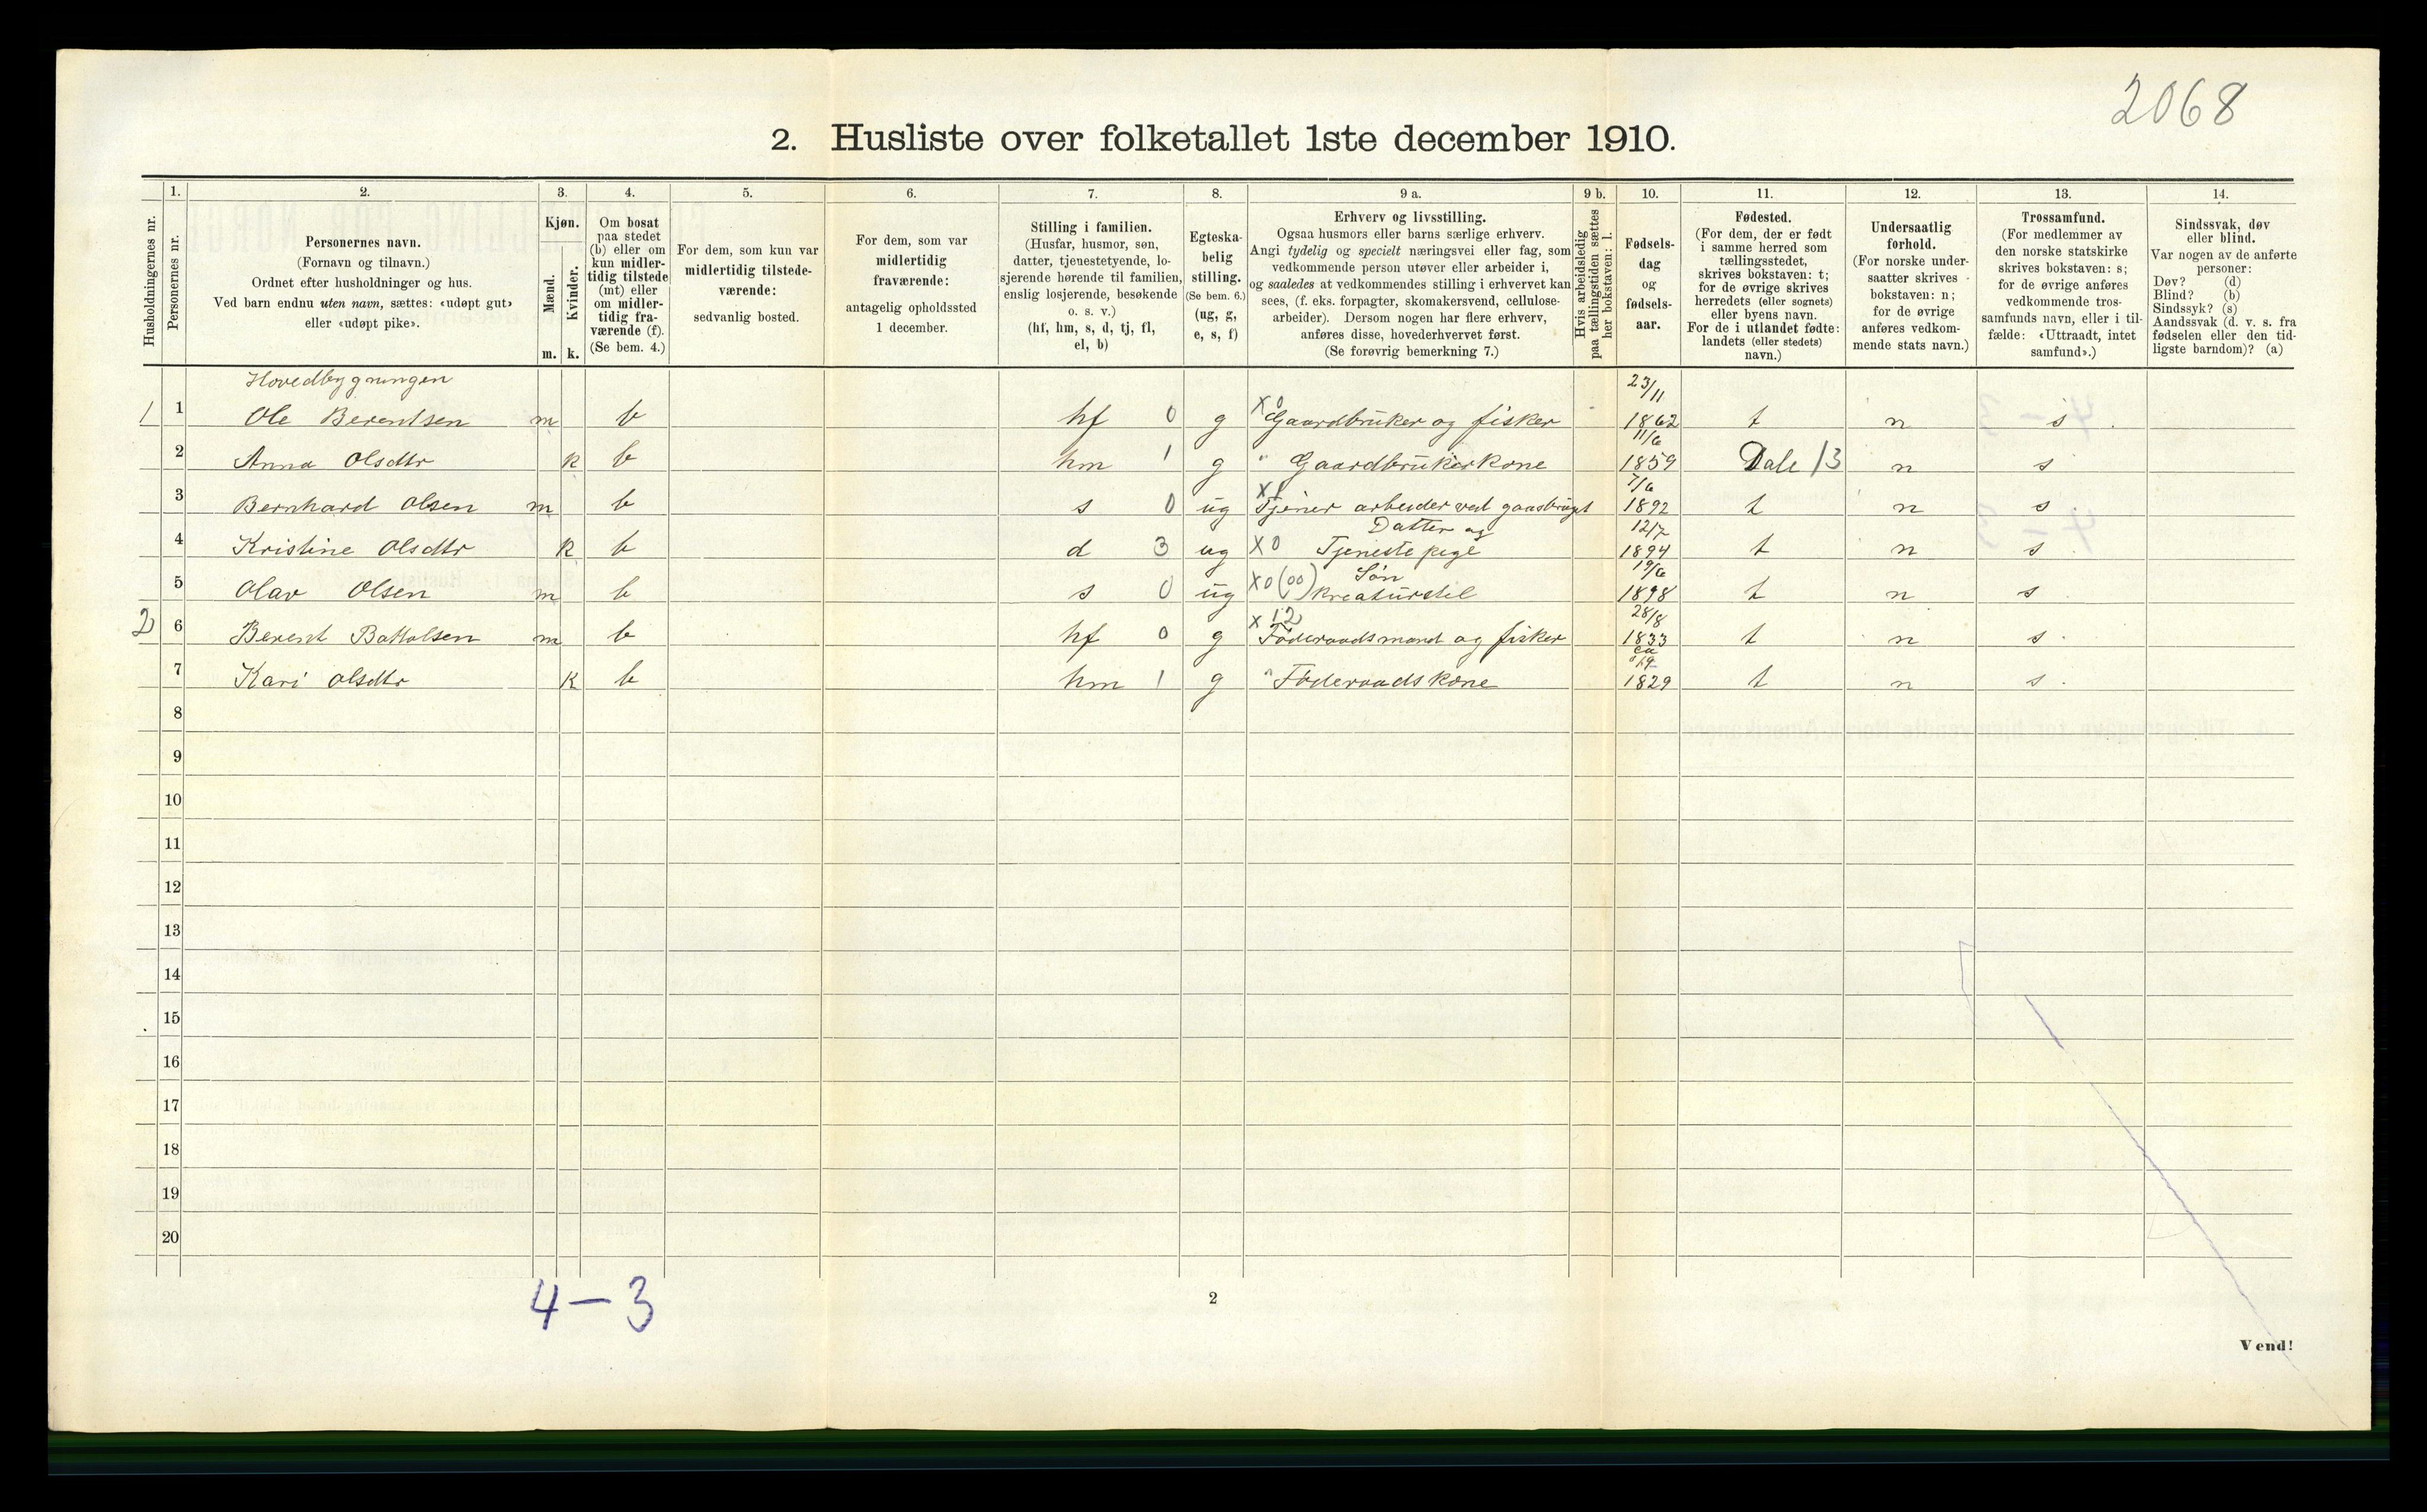 2068
2. Husliste over folketallet 1ste december 1910.
Husholdningernes nr.
1. Personernes nr.
2. Personernes navn. (Fornavn og tilnavn.) Ordnet efter husholdninger og hus. Ved barn endnu uten navn, sættes: «udøpt gut» eller «udøpt pike».
3. Kjøn. Mænd. m. Kvinder. k.
4. Om bosat paa stedet (b) eller om kun midlertidig tilstede (mt) eller om midlertidig fraværende (f). (Se bem. 4.)
5. For dem, som kun var midlertidig tilstedeværende: sedvanlig bosted.
6. For dem, som var midlertidig fraværende: antagelig opholdssted 1 december.
7. Stilling i familien. (Husfar, husmor, søn, datter, tjenestetyende, losjerende hørende til familien, enslig losjerende, besøkende o. s. v.) (hf, hm, s, d, tj, fl, el, b)
8. Egteskabelig stilling. (Se bem. 6.) (ug, g, e, s, f)
9 a. Erhverv og livsstilling. Ogsaa husmors eller barns særlige erhverv. Angi tydelig og specielt næringsvei eller fag, som vedkommende person utøver eller arbeider i, og saaledes at vedkommendes stilling i erhvervet kan sees, (f. eks. forpagter, skomakersvend, cellulosearbeider). Dersom nogen har flere erhverv, anføres disse, hovederhvervet først. (Se forøvrig bemerkning 7.)
9 b. Hvis arbeidsledig paa tællingstiden sættes her bokstaven: l.
10. Fødselsdag og fødselsaar.
11. Fødested. (For dem, der er født i samme herred som tællingsstedet, skrives bokstaven: t; for de øvrige skrives herredets (eller sognets) eller byens navn. For de i utlandet fødte: landets (eller stedets) navn.)
12. Undersaatlig forhold. (For norske undersaatter skrives bokstaven: n; for de øvrige anføres vedkommende stats navn.)
13. Trossamfund. (For medlemmer av den norske statskirke skrives bokstaven: s; for de øvrige anføres vedkommende trossamfunds navn, eller i tilfælde: «Uttraadt, intet samfund».)
14. Sindssvak, døv eller blind. Var nogen av de anførte personer: Døv? (d) Blind? (b) Sindssyk? (s) Aandssvak (d. v. s. fra fødselen eller den tidligste barndom)? (a)
Hovedbygningen
1 1 Ole Berentsen m b hf 0 g X0 Gaardbruker og fisker 23/11 1862 t n s
2 Anna Olsdtr k b hm 1 g " Gaardbrukerkone 11/6 1859 Dale 13 n s
3 Bernhard Olsen m b s 0 ug X1 Tjener arbeider ved gaardbruget 7/6 1892 t n s
4 Kristine Olsdtr k b d 3 ug X0 Datter og Tjenestepige 12/7 1894 t n s
5 Olav Olsen m b s 0 ug X0(00) Søn kreaturstel 19/6 1898 t n s
2 6 Berent Batholsen m b hf 0 g X 12 Føderaadsmand og fisker 28/8 1833 t n s
7 Kari Olsdtr k b hm 1 g " Føderaadskone 1829 t n s
8
9
10
11
12
13
14
15
16
17
18
19
20
4 — 3
2
Vend!